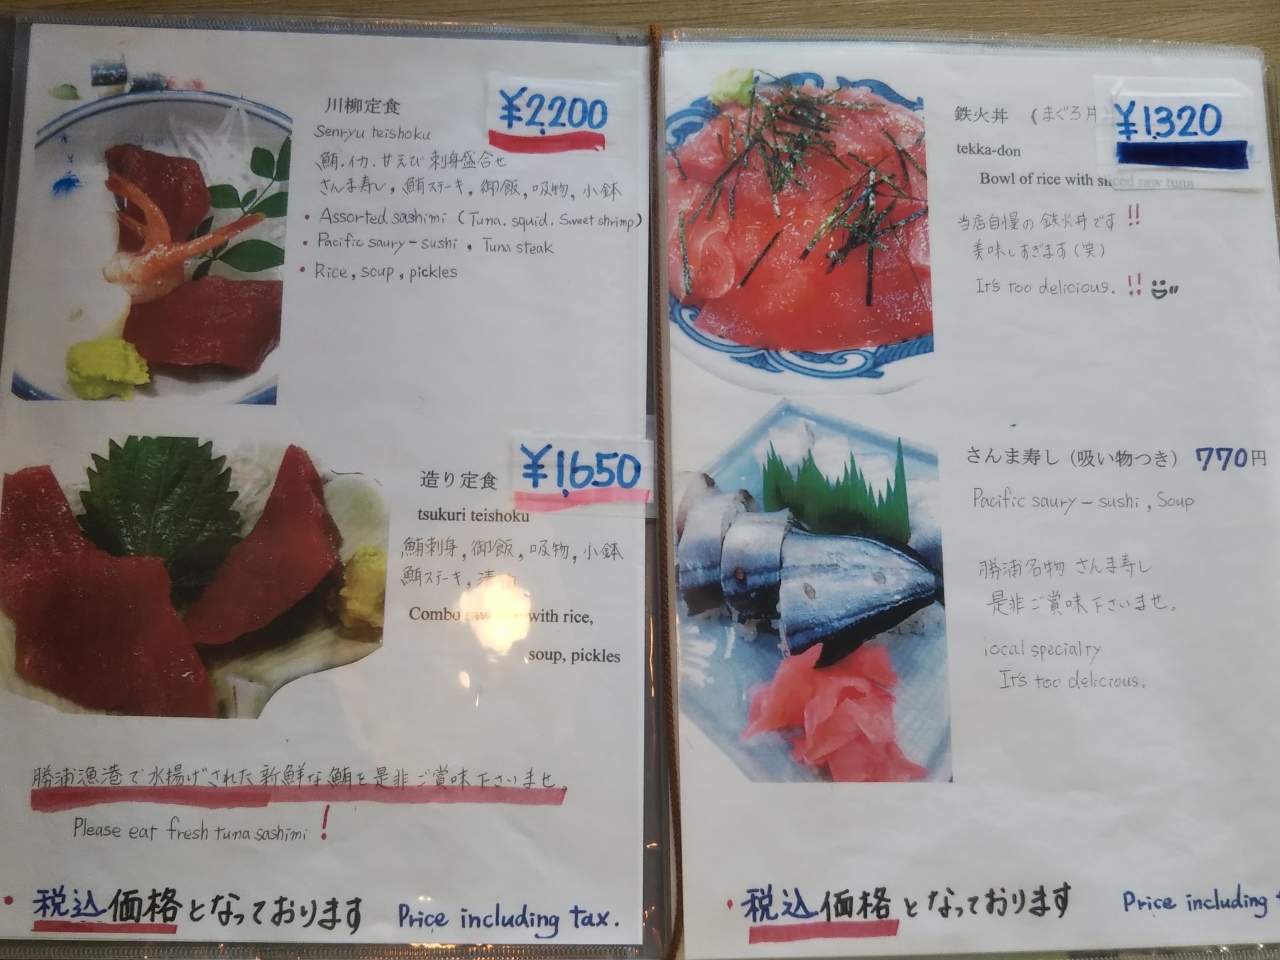 川柳定食
¥2,200
Senryu teishoku
鮪.イカ.甘えび 刺身盛合せ
さんま寿し,鮪ステーキ,御飯,吸物,小鉢
• Assorted sashimi (Tuna. squid. Sweet shrimp)
• Pacific saury-sushi • Tuna steak
• Rice, soup, pickles
造り定食
¥1,650
tsukuri teishoku
鮪刺身,御飯,吸物,小鉢
鮪ステーキ,
Combo with rice,
soup, pickles
勝浦漁港で水揚げされた新鮮な鮪を是非ご賞味下さいませ。
Please eat fresh tuna sashimi !
• 税込価格となっております Price including tax.
鉄火丼 (まぐろ丼
¥1,320
tekka-don
Bowl of rice with sliced raw tuna
当店自慢の鉄火丼です!!
美味しすぎます(笑)
It's too delicious. !!
さんま寿し(吸い物つき) 770円
Pacific saury - sushi , Soup
勝浦名物 さんま寿し
是非ご賞味下さいませ。
local specialty
It's too delicious.
• 税込価格となっております Price including